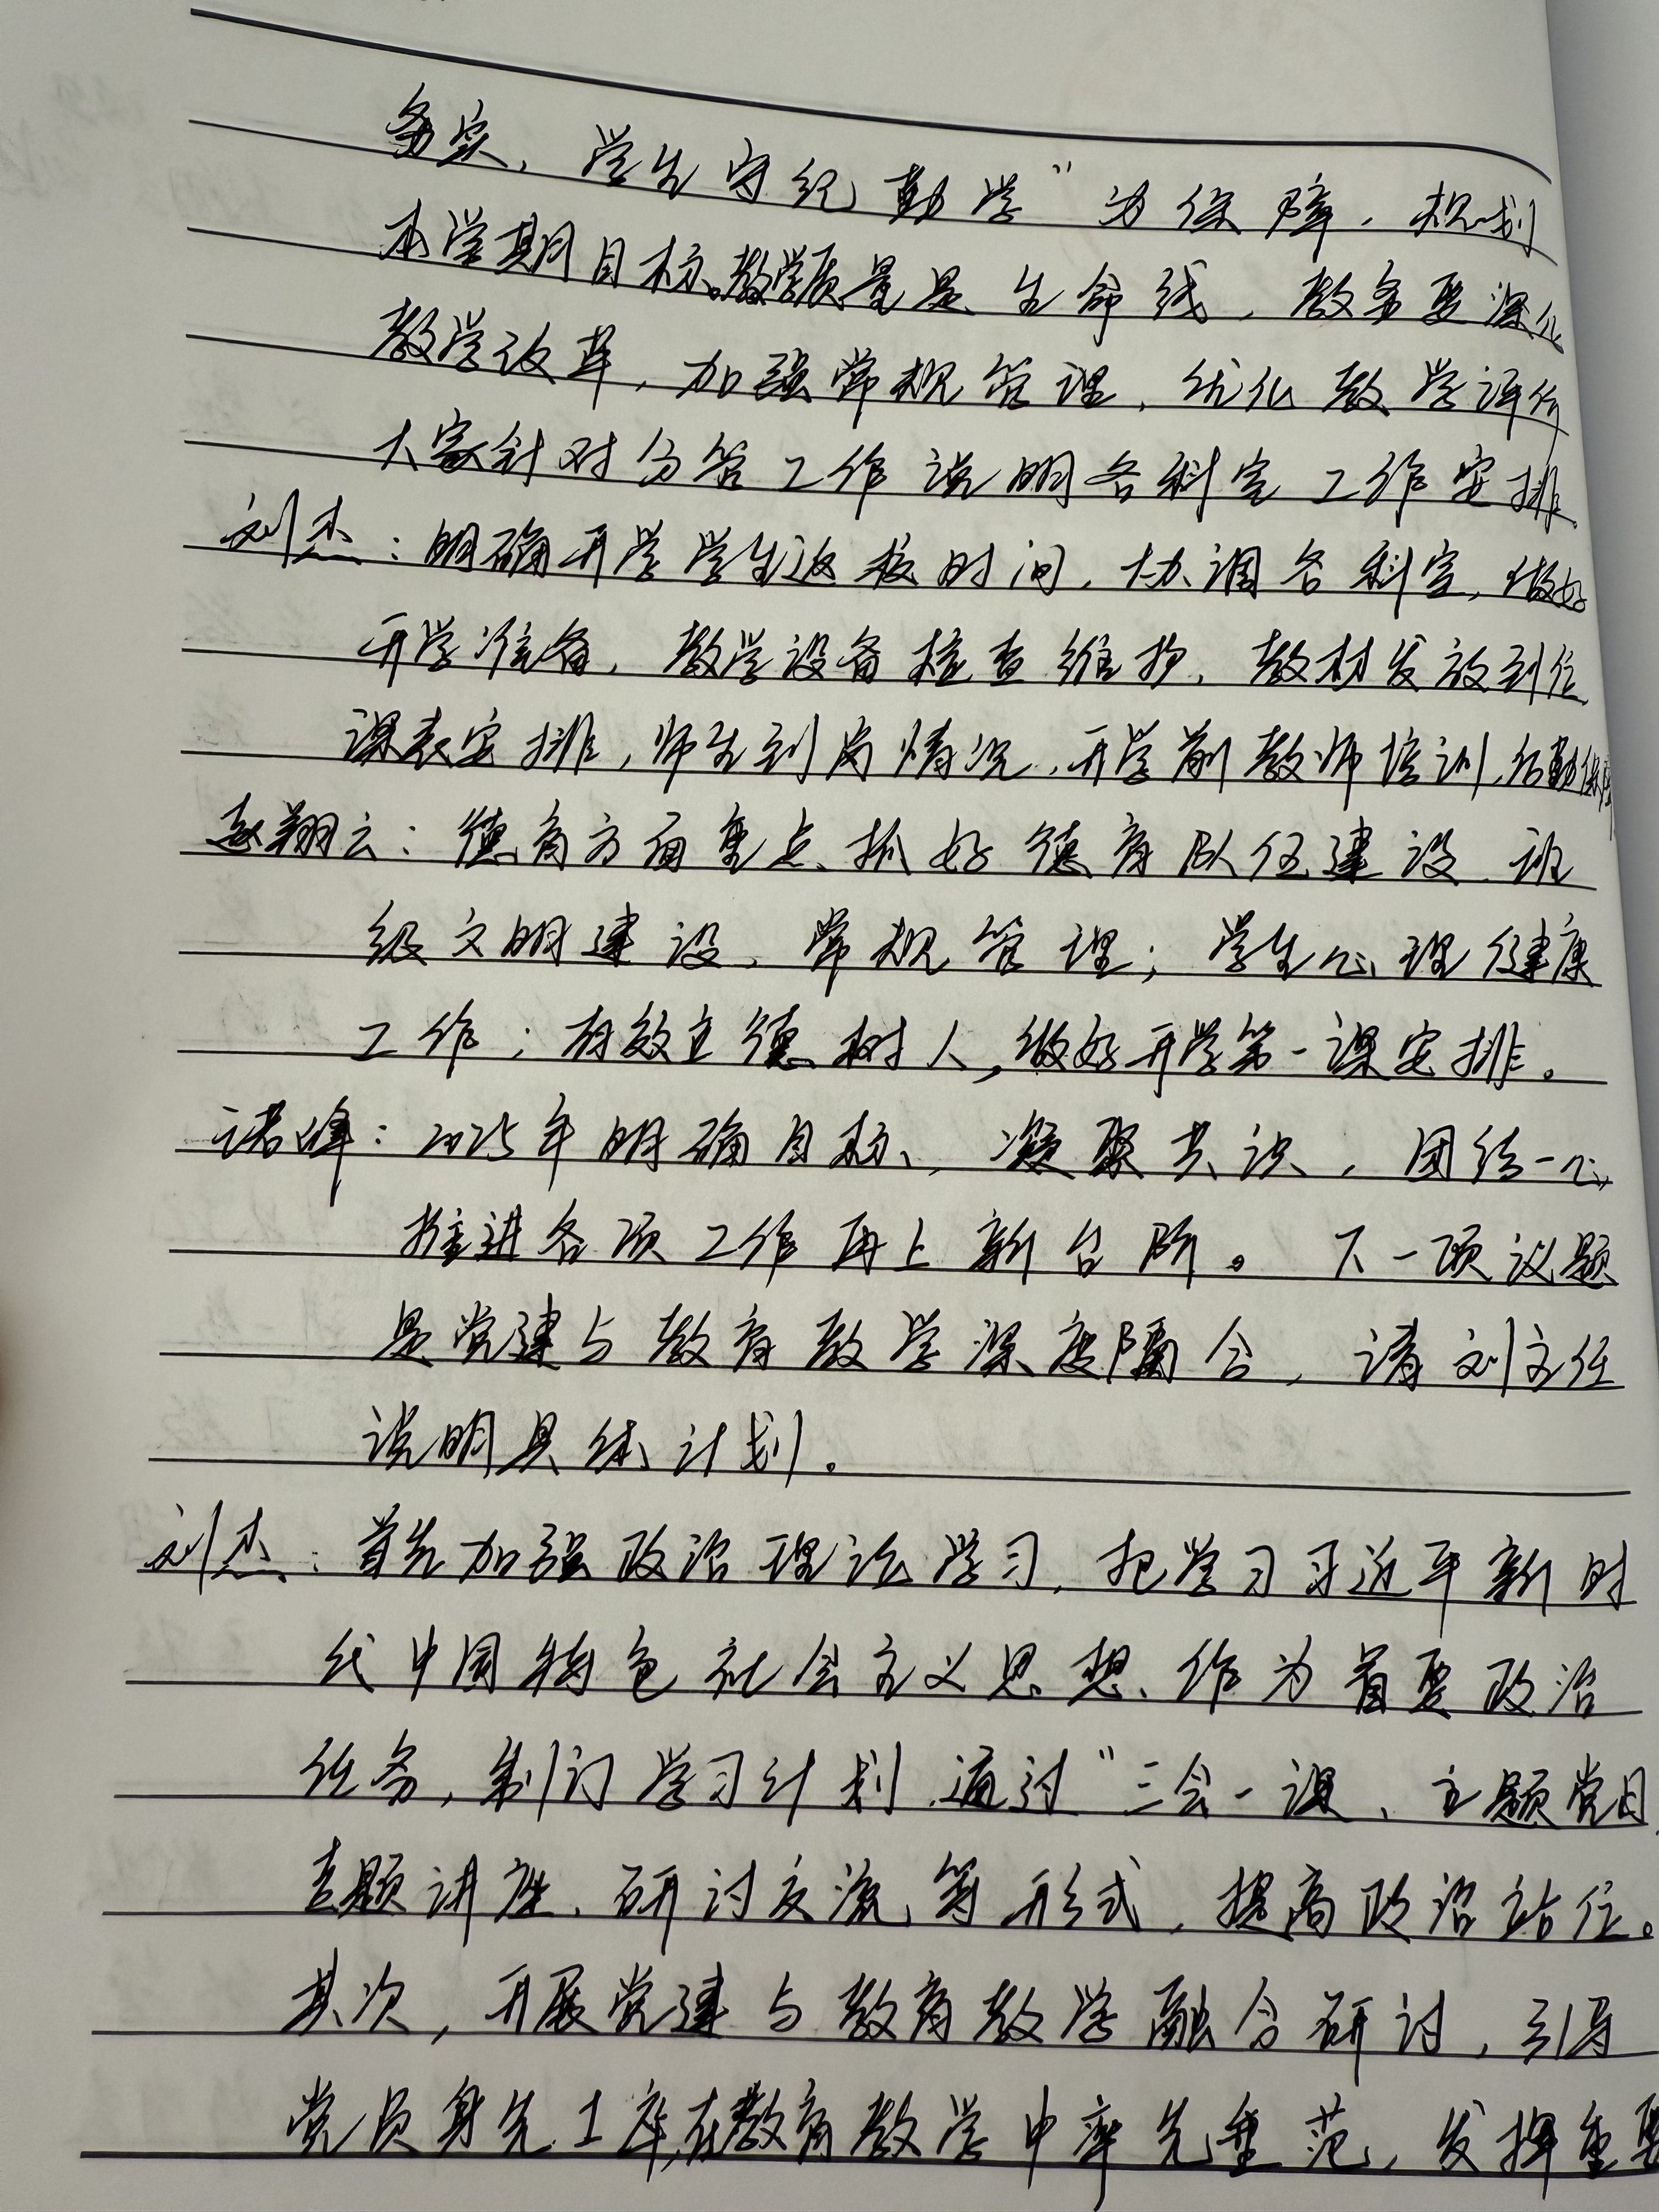 务实、学生守纪勤学”为保障，规划
本学期目标。教学质量是生命线，教务要深化
教学改革，加强常规管理、优化教学评价
大家针对分管工作说明各科室工作安排.
刘杰：明确开学学生返校时间，协调各科室，做好
开学准备，教学设备检查维护，教材发放到位
课表安排，师生到岗情况，开学前教师培训，后勤保障
赵翔云：德育方面重点抓好德育队伍建设、班
级文明建设、常规管理；学生心理健康
工作；有效立德树人，做好开学第一课安排。
诺峰：2025年明确目标、凝聚共识，团结一心
推进各项工作再上新台阶。下一项议题
是党建与教育教学深度融合，请刘主任
说明具体计划。
刘杰：首先加强政治理论学习，把学习习近平新时
代中国特色社会主义思想、作为首要政治
任务，制订学习计划，通过“三会一课、主题党日
专题讲座、研讨交流等形式，提高政治站位。
其次，开展党建与教育教学融合研讨，引导
党员身先士卒，在教育教学中率先垂范，发挥重要